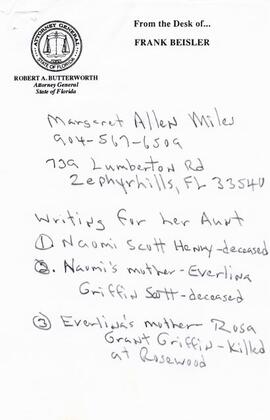 From the Desk of...
FRANK BEISLER
ATTORNEY GENERAL
STATE OF FLORIDA
ROBERT A. BUTTERWORTH
Attorney General
State of Florida
Margaret Allen Miles
904-567-6509
739 Lumberton Rd
Zephyrhills, FL 33540
Writing for her Aunt
① Naomi Scott Henry-deceased
②. Naomi's mother-Everlina
Griffin Scott-deceased
③ Everlina's mother-Rosa
Grant Griffin-Killed
at Rosewood